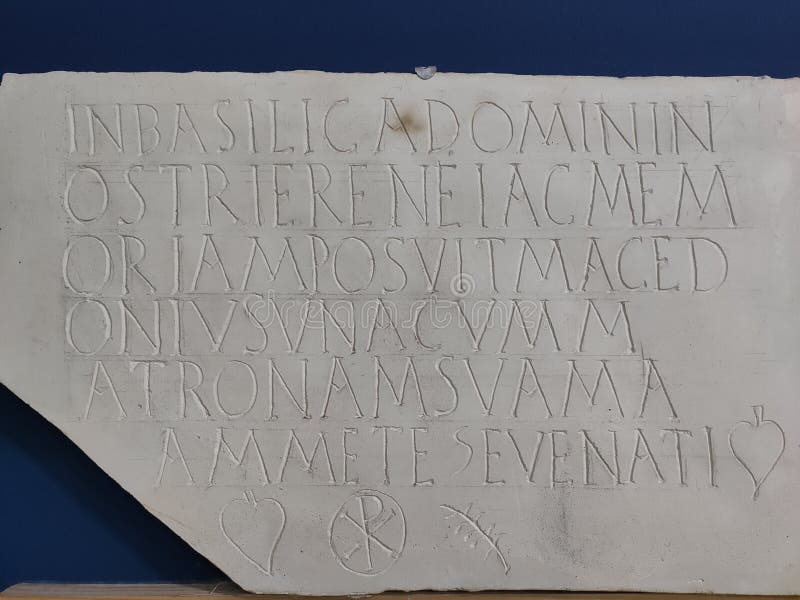 INBASILICADOMININ
OSTRIERENEIACMEM
ORIAMPOSVITMACED
ONIVSVNACVMM
ATRONAMSVAMA
AMMETESEVENATI
dreamstime